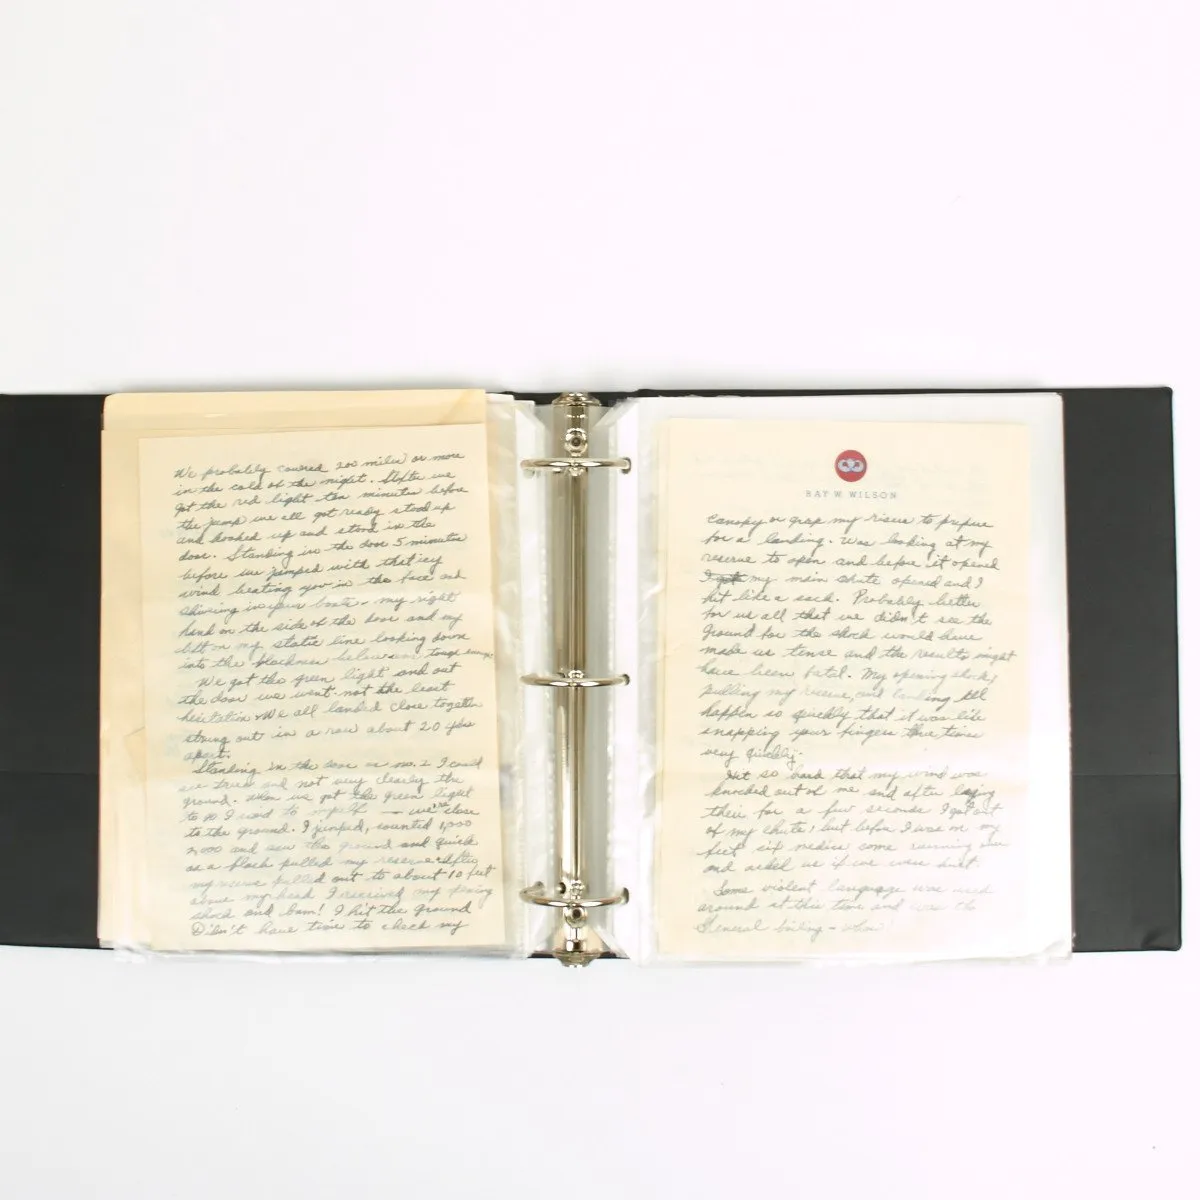 We probably covered 200 miles or more
in the cold of the night. After we
got the red light ten minutes before
the jump we all got ready stood up
and hooked up and stood in the
door. Standing in the door 5 minutes
before we jumped with that icy
wind beating you in the face and
shivering in your boots - my right
hand on the side of the door and my
left on my static line looking down
into the blackness below was tough enough
We got the green light and out
the door we went - not the least
hesitation. We all landed close together
strung out in a row about 20 yds
apart.
Standing in the door as no. 2 I could
see trees and not very clearly the
ground. When we got the green light
to go I said to myself — we're close
to the ground. I jumped, counted 1,000
2,000 and saw the ground and quick
as a flash pulled my reserve. After
my reserve pulled out to about 10 feet
above my head I received my opening
shock and bam! I hit the ground
Didn't have time to check my
RAY W WILSON
canopy or grap my risers to prepare
for a landing. Was looking at my
reserve to open and before it opened
my main chute opened and I
hit like a sack. Probably better
for us all that we didn't see the
ground for the shock would have
made us tense and the results might
have been fatal. My opening shock,
pulling my reserve and landing all
happen so quickly that it was like
snapping your fingers three times
very quickly.
Hit so hard that my wind was
knocked out of me and after laying
there for a few seconds I got out
of my chute, but before I was on my
feet six medics came running over
and asked us if we were hurt.
Some violent language was used
around at this time and was the
General boiling - whew!